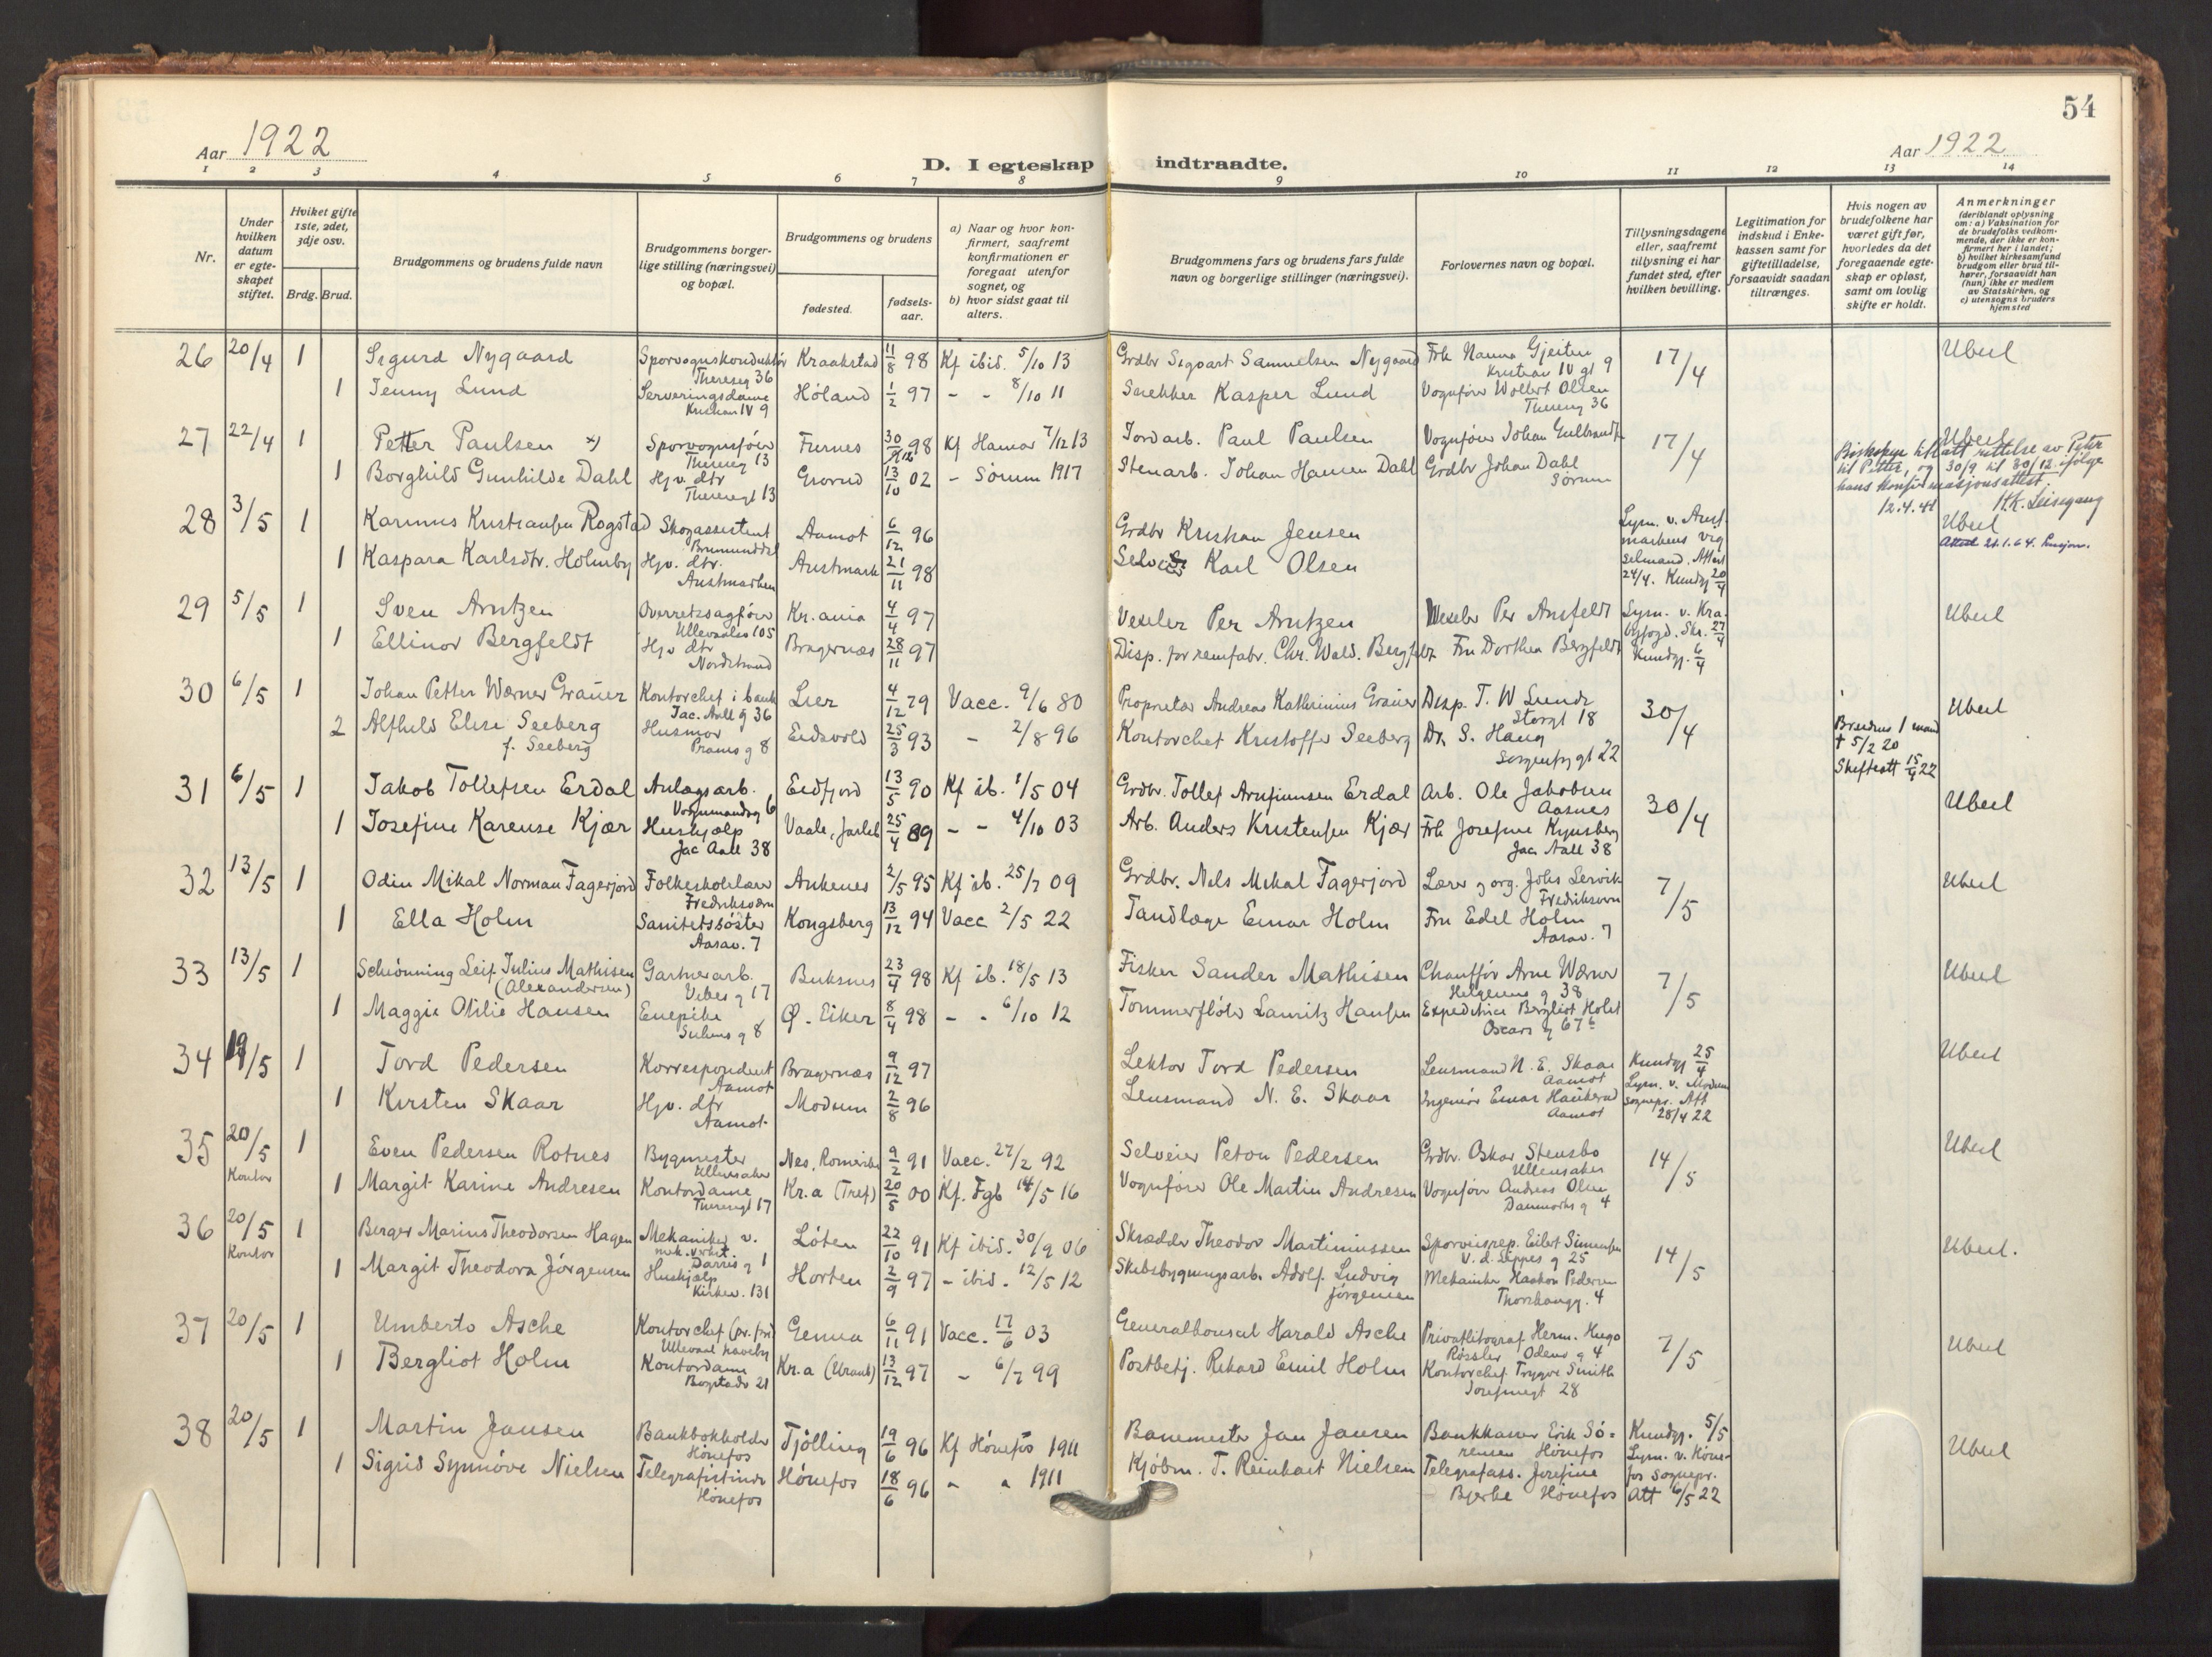 54
Aar 1922
D. I egteskap indtraadte.
Aar 1922
1 2 3 4 5 6 7 8 9 10 11 12 13 14
Nr.
Under hvilken datum er egteskapet stiftet.
Hviket gifte 1ste, 2det, 3dje osv.
Brdg. Brud.
Brudgommens og brudens fulde navn
Brudgommens borgerlige stilling (næringsvei) og bopæl.
Brudgommens og brudens
fødested.
fødselsaar.
a) Naar og hvor konfirmert, saafremt konfirmationen er foregaat utenfor sognet, og
b) hvor sidst gaat til alters.
Brudgommens fars og brudens fars fulde navn og borgerlige stillinger (næringsvei).
Forlovernes navn og bopæl.
Tillysningsdagene eller, saafremt tillysning ei har fundet sted, efter hvilken bevilling.
Legitimation for indskud i Enkekassen samt for giftetilladelse, forsaavidt saadan tiltrænges.
Hvis nogen av brudefolkene har været gift før, hvorledes da det foregaaende egteskap er opløst, samt om lovlig skifte er holdt.
Anmerkninger (deriblandt oplysning om: a) Vaksination for de brudefolks vedkommende, der ikke er konfirmert her i landet; b) hvilket kirkesamfund brudgom eller brud tilhører, forsaavidt han (hun) ikke er medlem av Statskirken, og c) utensogns bruders hjemsted
26 20/4 1 Sigurd Nygaard Sporvognskonduktør Theresg 36 Kraakstad 11/8 98 Kf ibid. 5/10 13 Grdbr Sigvart Samuelsen Nygaard Frk Nanna Gjeiten Kristian IV gt 9 17/4 Uberl
1 Jenny Lund Serveringsdame Kristian IV 9 Høland 1/2 97 - - 8/10 11 Snekker Kasper Lund Vognfører Wollert Olsen Theresg 36
27 22/4 1 Petter Paulsen x) Sporvognsfører Theresg 13 Furnes 30/12 98 Kf Hamar 7/12 13 Jordarb. Paul Paulsen Vognfører Johan Gulbrands. 17/4 Uberl
1 Borghild Gunhilde Dahl Hjv. dtr Theresgt 13 Grorud 13/10 02 - Sørum 1917 Stenarb. Johan Hansen Dahl Grdbr Johan Dahl Sørum
Biskopen tillatt rettelse av Peter til Petter, og 30/9 til 30/12 ifølge hans konfirmasjonsattest. 12.4.41 H.K. Leisegang
28 3/5 1 Karinus Kristiansen Rogstad Skogassistent Brumunddal Aamot 6/12 96 Grdbr Kristian Jensen Lysn. v. Aust-markens v. Attest 24/4. Kundg 20/4 Uberl
1 Kaspara Karlsdtr. Holmby Hjv. dtr. Austmarken Austmark 21/11 98 Selveier Karl Olsen Attest 21.1.64. Pensjon.
29 5/5 1 Sven Arntzen Overretssagfører Ullevaalsv 105 Kr.ania 4/4 97 Veksler Per Arntzen Lysn. v. Kra. byfogd. Skr. 27/4 Kundg. 6/4 Uberl
1 Ellinor Bergfeldt Hjv dtr Nordstrand Bragernæs 28/11 97 Disp. for remfabr. Chr. Wald. Bergfeldt Fru Dorthea Bergfeldt
30 6/5 1 Johan Petter Wærner Graüer Kontorchef i bank Jac. Aall g 36 Lier 4/12 79 Vacc. 9/6 80 Proprietær Andreas Kathrinius Graüer Disp. T. W Lund Storgt 18 30/4 Uberl
2 Alfhild Elise Seeberg f. Seeberg Husmor Prams g 8 Eidsvold 25/3 93 - 2/8 96 Kontorchef Kristoffer Seeberg Dr. S. Haug Sorgenfrygt 22
Brudens 1 mand † 5/2 20 Skifteatt 15/4 22
31 6/5 1 Jakob Tollefsen Erdal Anlagsarb. Vognmandsg 6 Eidfjord 13/5 90 Kf ib. 1/5 04 Grdbr. Tollef Arnfinnsen Erdal Arb. Ole Jakobsen Aasnes 30/4 Uberl
1 Josefine Karense Kjær Hushjælp Jac Aall 38 Vaale, Jarlsb 25/4 89 - - 4/10 03 Arb. Anders Kristensen Kjær Frk Josefine Kynsberg Jac. Aall 38
32 13/5 1 Odin Mikal Norman Fagerjord Folkeskolelærer Fredriksværn Ankenes 2/5 95 Kf ib. 25/7 09 Grdbr. Nils Mikal Fagerjord Lærer og org. Johs Lervik Fredriksværn 7/5 Uberl
1 Ella Holm Sanitetssøster Aasav. 7 Kongsberg 13/12 94 Vacc 2/5 22 Tandlæge Einar Holm Fru Edel Holm Aasav. 7
33 13/5 1 Schiønning Leif Julius Mathisen (Alexandersen) Gartnerarb. Vibes g 17 Buksnes 23/4 98 Kf ib. 18/5 13 Fisker Sander Mathisen Chauffør Arne Wærner Helgesens g 38 7/5 Uberl
1 Maggie Otilie Hansen Enepike Suhms g 8 Ø. Eiker 8/4 98 - - 6/10 12 Tømmerfløter Lauritz Hansen Expeditrice Bergliot Holst Oscars g 67 b
34 19/5 1 Tord Pedersen Korrespondent Aamot Bragernæs 9/12 97 Lektor Tord Pedersen Lensmand N. E. Skaar Aamot Kundgj 25/4 Lysn. v. Modum sognepr. Att 28/4 22 Uberl
1 Kirsten Skaar Hjv. dtr Aamot Modum 2/8 96 Lensmand N. E. Skaar Ingeniør Einar Haukerud Aamot
35 20/5 Kontor 1 Even Pedersen Rotnes Bygmester Ullensaker Nes, Romerike 9/2 91 Vacc. 27/2 92 Selveier Peter Pedersen Grdbr. Oskar Stensbo Ullensaker 14/5 Uberl
1 Margit Karine Andresen Kontordame Theresgt 17 Kr.a (Tref) 20/5 00 Kf. Fgb 14/5 16 Vognfører Ole Martin Andresen Vognfører Andreas Olsen Danmarks g 4
36 20/5 Kontor 1 Berger Marius Theodorsen Hagen Mekaniker v. mek. verkst. Darres g 1 Løten 22/10 91 Kf ibid. 30/9 06 Skrædder Theodor Martiniussen Sporveisrep. Eilert Simensen V. d. Lippes g 25 14/5 Uberl.
1 Margit Theodora Jørgensen Hushjælp Kirkev. 131 Horten 2/9 97 - ibid. 12/5 12 Skibsbygningsarb. Adolf Ludvig Jørgensen Mekaniker Haakon Pedersen Thorshaugg. 4
37 20/5 1 Umberto Asche Kontorchef (pr. for) Ullevaal haveby Genua 6/11 91 Vacc. 17/6 03 Generalkonsul Harald Asche Privatlitograf Herm. Hugo Røssler Odins g 4 7/5 Uberl
1 Bergliot Holm Kontordame Bogstadv 21 Kr.a (Uranb) 13/12 97 - 6/7 99 Postbetj. Rikard Emil Holm Kontorchef Trygve Smith Josefinegt 28
38 20/5 1 Martin Jansen Bankbokholder Hønefos Tjølling 19/6 96 Kf Hønefos 1911 Banemester Jan Jansen Bankkasser Erik Sørensen Hønefos Kundgj. 5/5 Lysn. v. Hønefos Sognepr. Att 6/5 22 Uberl
1 Sigrid Synnøve Nielsen Telegrafistinde Hønefos Hønefos 18/6 96 - " 1911 Kjøbm. T. Reinhart Nielsen Telegrafass. Josefine Bjerke Hønefos